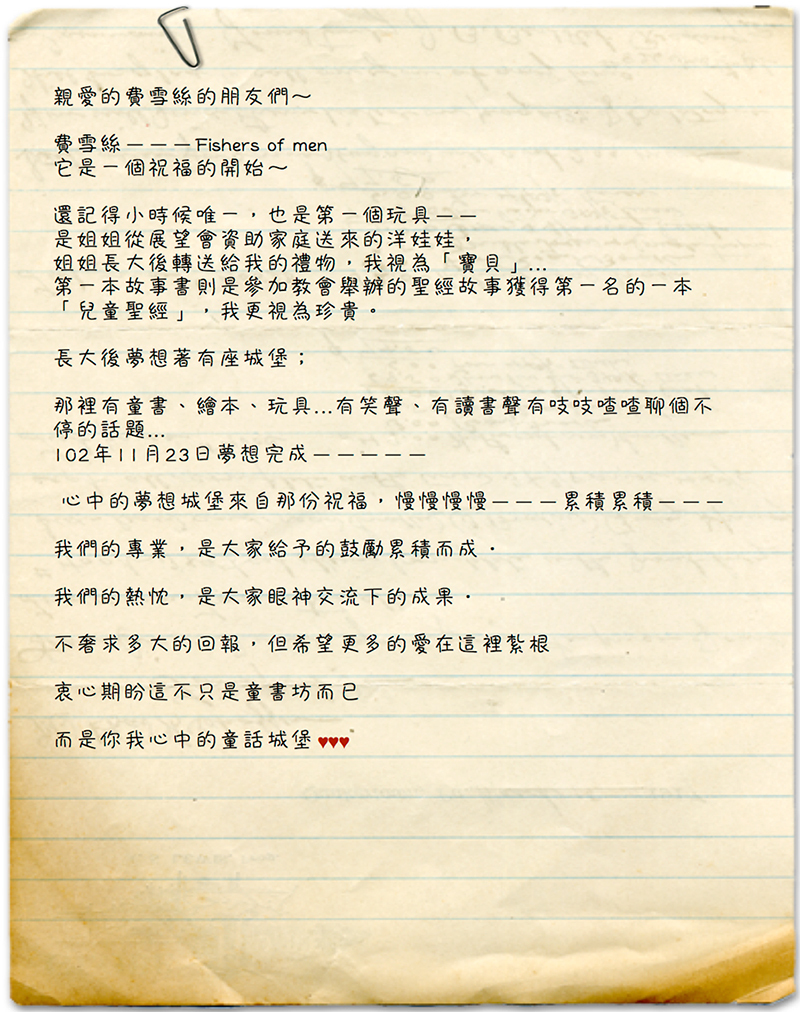 親愛的費雪絲的朋友們～
費雪絲－－－Fishers of men
它是一個祝福的開始～
還記得小時候唯一，也是第一個玩具－－
是姐姐從展望會資助家庭送來的洋娃娃，
姐姐長大後轉送給我的禮物，我視為「寶貝」...
第一本故事書則是參加教會舉辦的聖經故事獲得第一名的一本
「兒童聖經」，我更視為珍貴。
長大後夢想著有座城堡；
那裡有童書、繪本、玩具...有笑聲、有讀書聲有吱吱喳喳聊個不
停的話題...
102年11月23日夢想完成－－－－－
心中的夢想城堡來自那份祝福，慢慢慢慢－－－累積累積－－－
我們的專業，是大家給予的鼓勵累積而成．
我們的熱忱，是大家眼神交流下的成果．
不奢求多大的回報，但希望更多的愛在這裡紮根
衷心期盼這不只是童書坊而已
而是你我心中的童話城堡♥♥♥